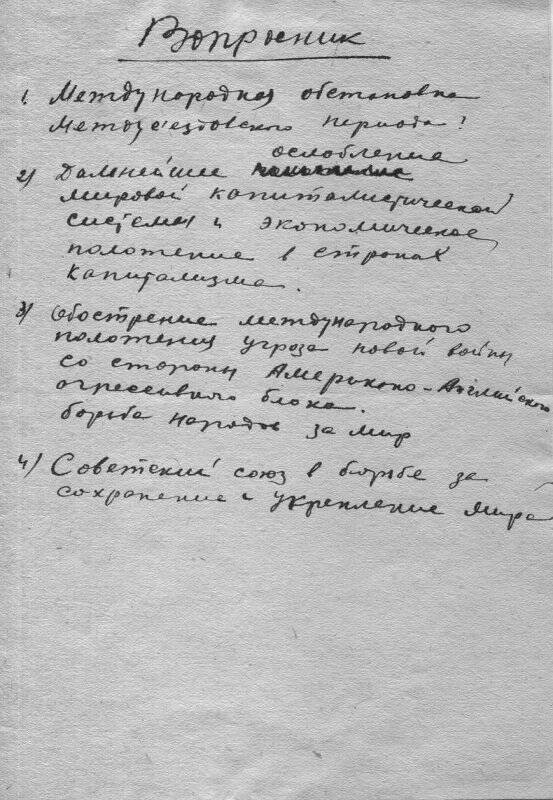 Вопросник
1. Международная обстановка
Междусъездовского периода?
ослобление
2) Дальнейшие
мировой капиталистической
системы и экономическое
положение в странах
капитализма.
3) Обострение международного
положения угроза новой войны
со стороны Американо-Английского
огрессивного блока.
борьба народов за мир
4) Советский союз в борьбе за
сохранение и укрепление мира